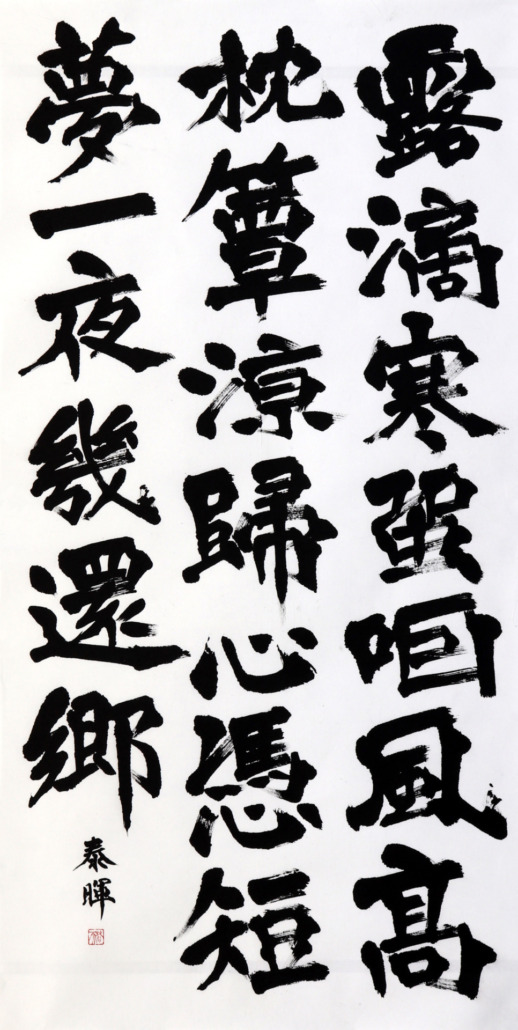 露滴寒蛩咽風高
枕簟涼歸心憑短
夢一夜幾還鄉
泰暉